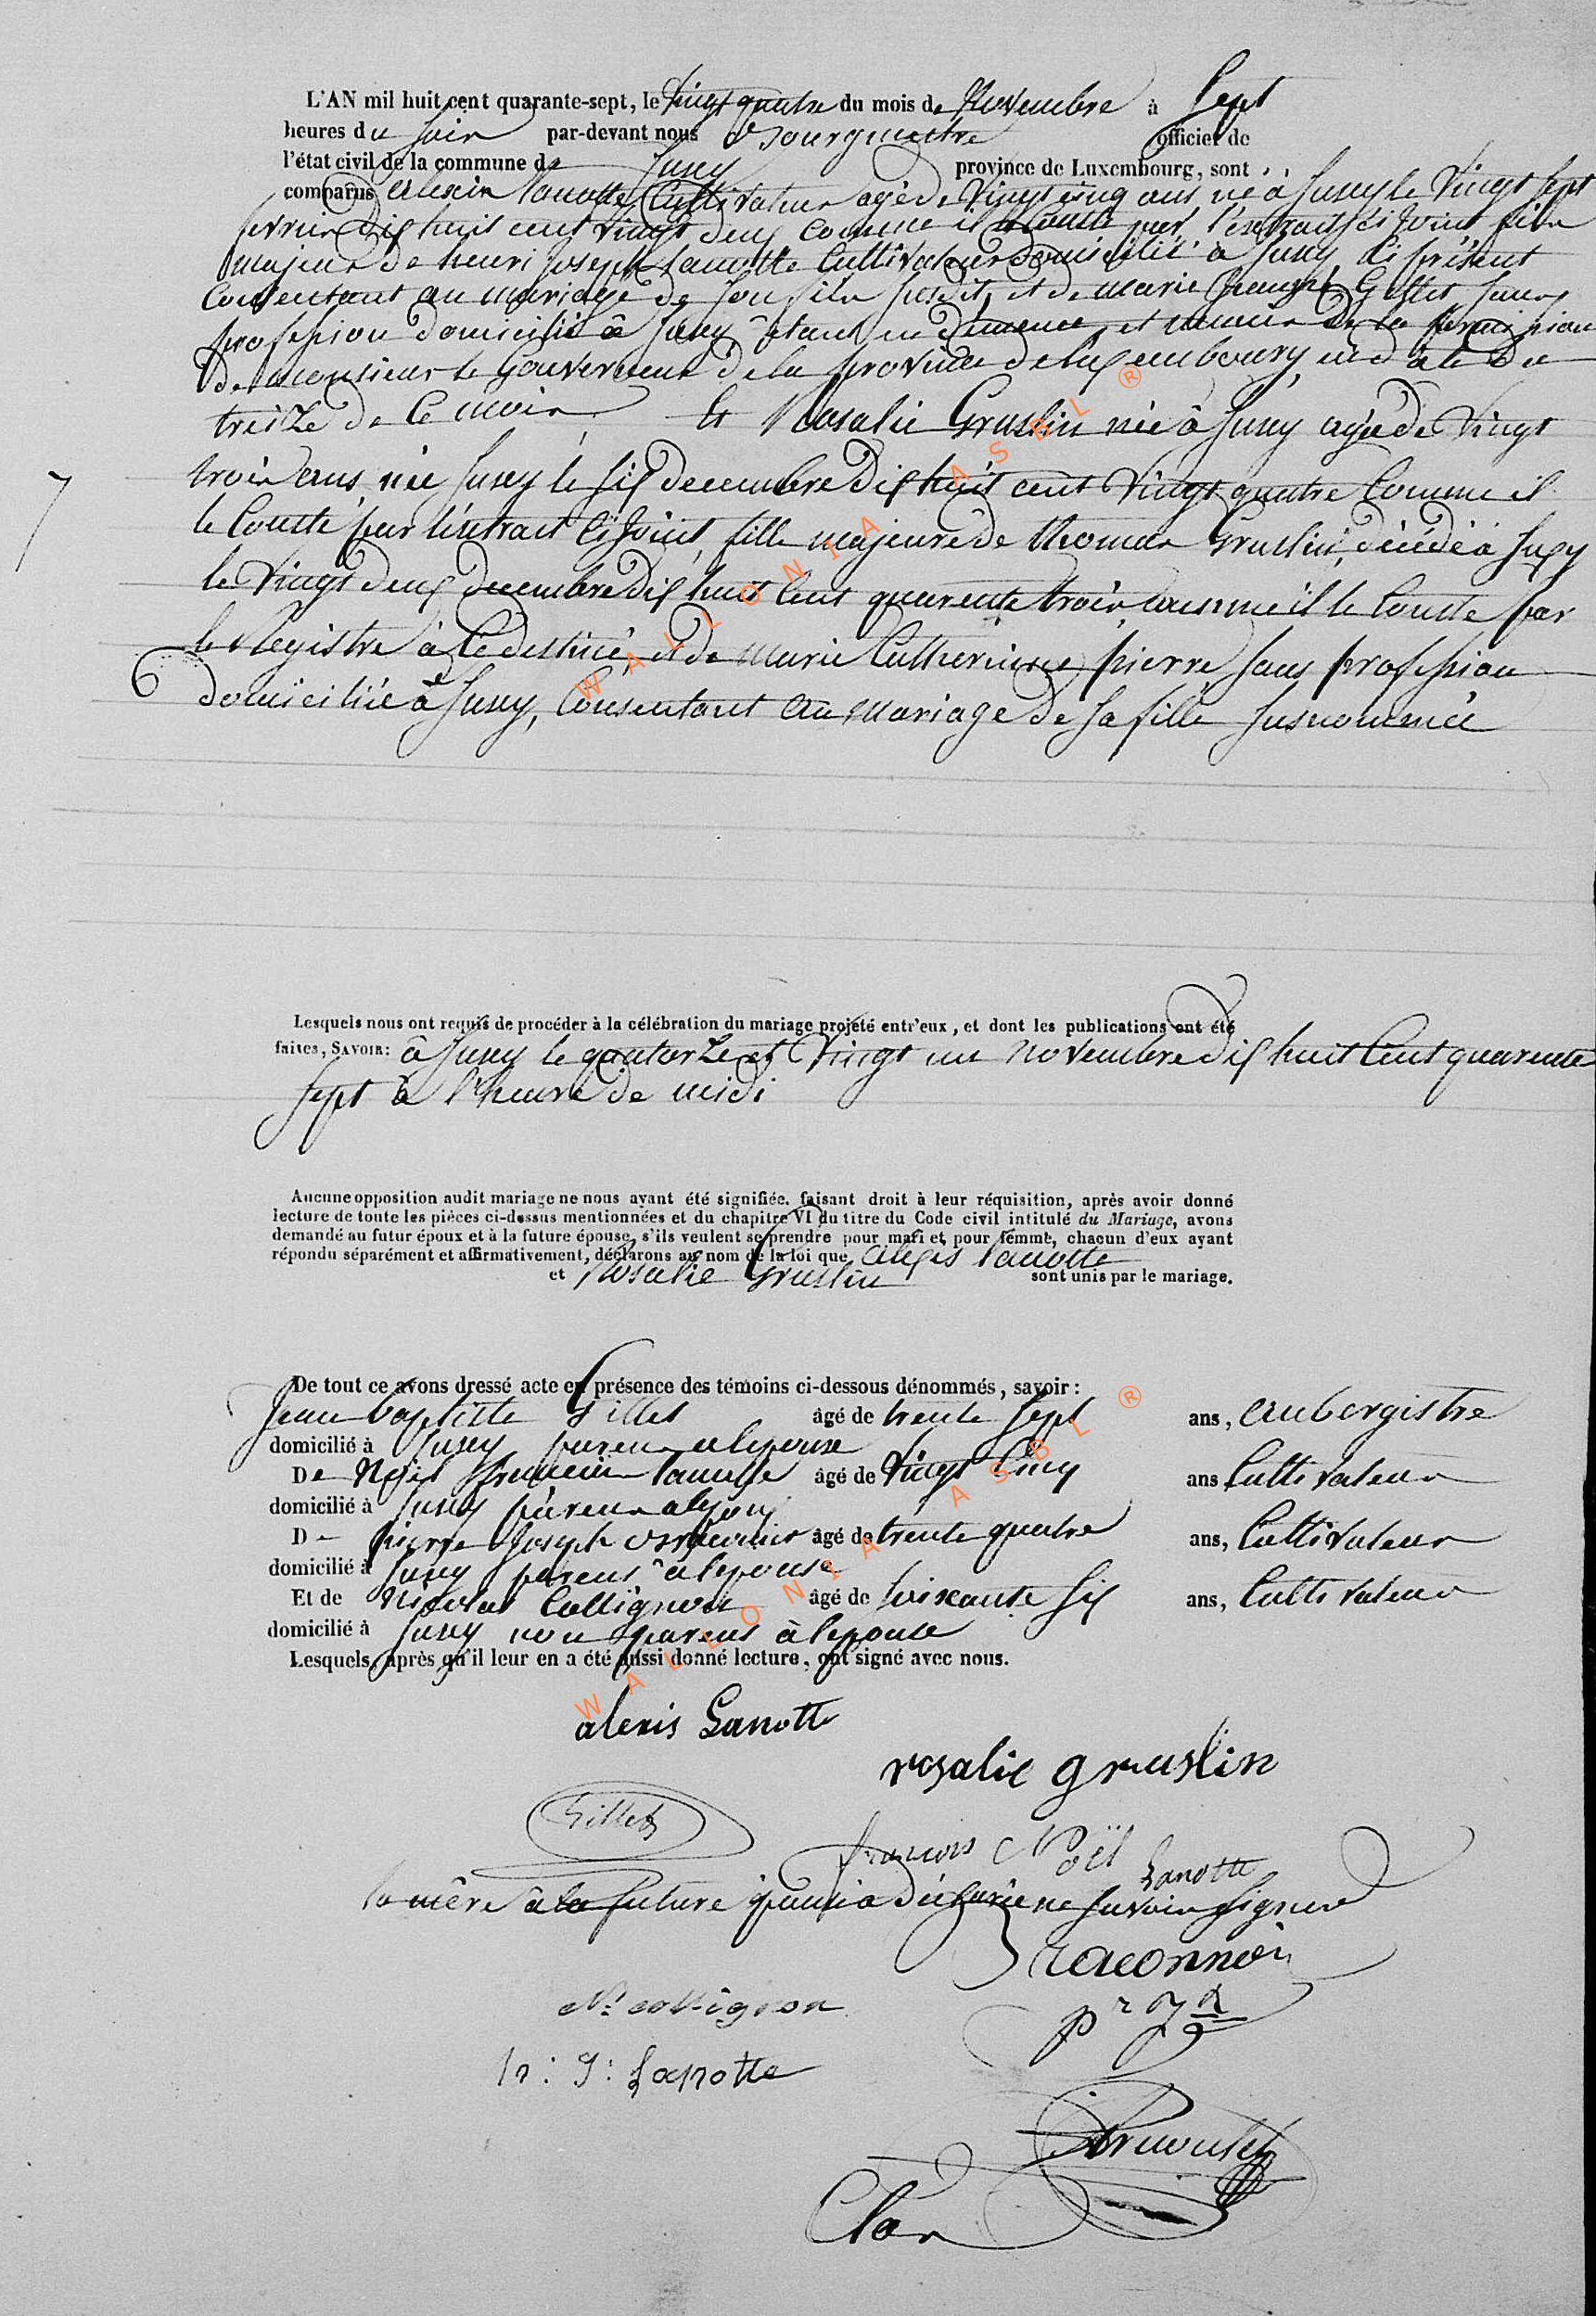 L'AN mil huit cent quarante-sept, le Vingt quatre du mois de Novembre à Sept
heures du Soir par-devant nous Bourgmestre officier de
l'état civil de la commune de Jusey province de Luxembourg, sont
comparus Alexis Lanotte Cultivateur agé de Vingt cinq ans né à Jusey le Vingt Sept
fevrier dix huit cent Vingt deux comme il Conste par l'extrait ci Joint fils
majeur de henri Joseph Lanotte Cultivateur domicilié à Jusey ici présent
Consentant au mariage de Son fils Susdit, et de marie Gillet Sans
profession domicilié à Jusey, étant en démence, et de la permission
de monsieur le Gouverneur de la province de luxembourg, en date du
treize de Ce mois. Et Rosalie Gruslin née à Jusey agée de Vingt
trois ans, née Jusey le Six decembre Dix huit cent Vingt quatre Comme il
le Conste par l'extrait Ci Joint, fille majeure de thomas Gruslin, décédé à Jusey
le Vingt deux decembre Dix huit Cent quarente trois comme il le Conste par
le Registre à Ce destiné, et de marie Catherinne pierre Sans profession
domiciliée à Jusey, Consentant au mariage De Sa fille Susnommée
Lesquels nous ont requis de procéder à la célébration du mariage projeté entr'eux, et dont les publications ont été
faites, SAVOIR: à Jusey le quatorze et Vingt un novembre Dix huit Cent quarente
Sept à l'heure de midi
Aucune opposition audit mariage ne nous ayant été signifiée, faisant droit à leur réquisition, après avoir donné
lecture de toute les pièces ci-dessus mentionnées et du chapitre VI du titre du Code civil intitulé du Mariage, avons
demandé au futur époux et à la future épouse, s'ils veulent se prendre pour mari et pour femme, chacun d'eux ayant
répondu séparément et affirmativement, déclarons au nom de la loi que Alexis Lanotte
et Rosalie Gruslin sont unis par le mariage.
De tout ce avons dressé acte en présence des témoins ci-dessous dénommés, savoir:
Jean baptiste Gillet âgé de trente Sept ans, Aubergistre
domicilié à Jusey parens a lepouse
De Noël francois Lanotte âgé de Vingt Cinq ans Cultivateur
domicilié à Jusey parens
De pierre Joseph âgé de trente quatre ans, Cultivateur
domicilié à Jusey parens à lepouse
Et de Nicolas Collignon âgé de Soixante Six ans, Cultivateur
domicilié à Jusey non parens à lepouse
Lesquels, après qu'il leur en a été aussi donné lecture, ont signé avec nous.
alexis Lanotte
rosalie gruslin
Gillet
francois Noël
Lanotte
la mère à la future a déclarée ne Savoir Signer
N: collignon
h: J: Lanotte
WALLONIA ASBL ®
WALLONIA ASBL ®
7
6